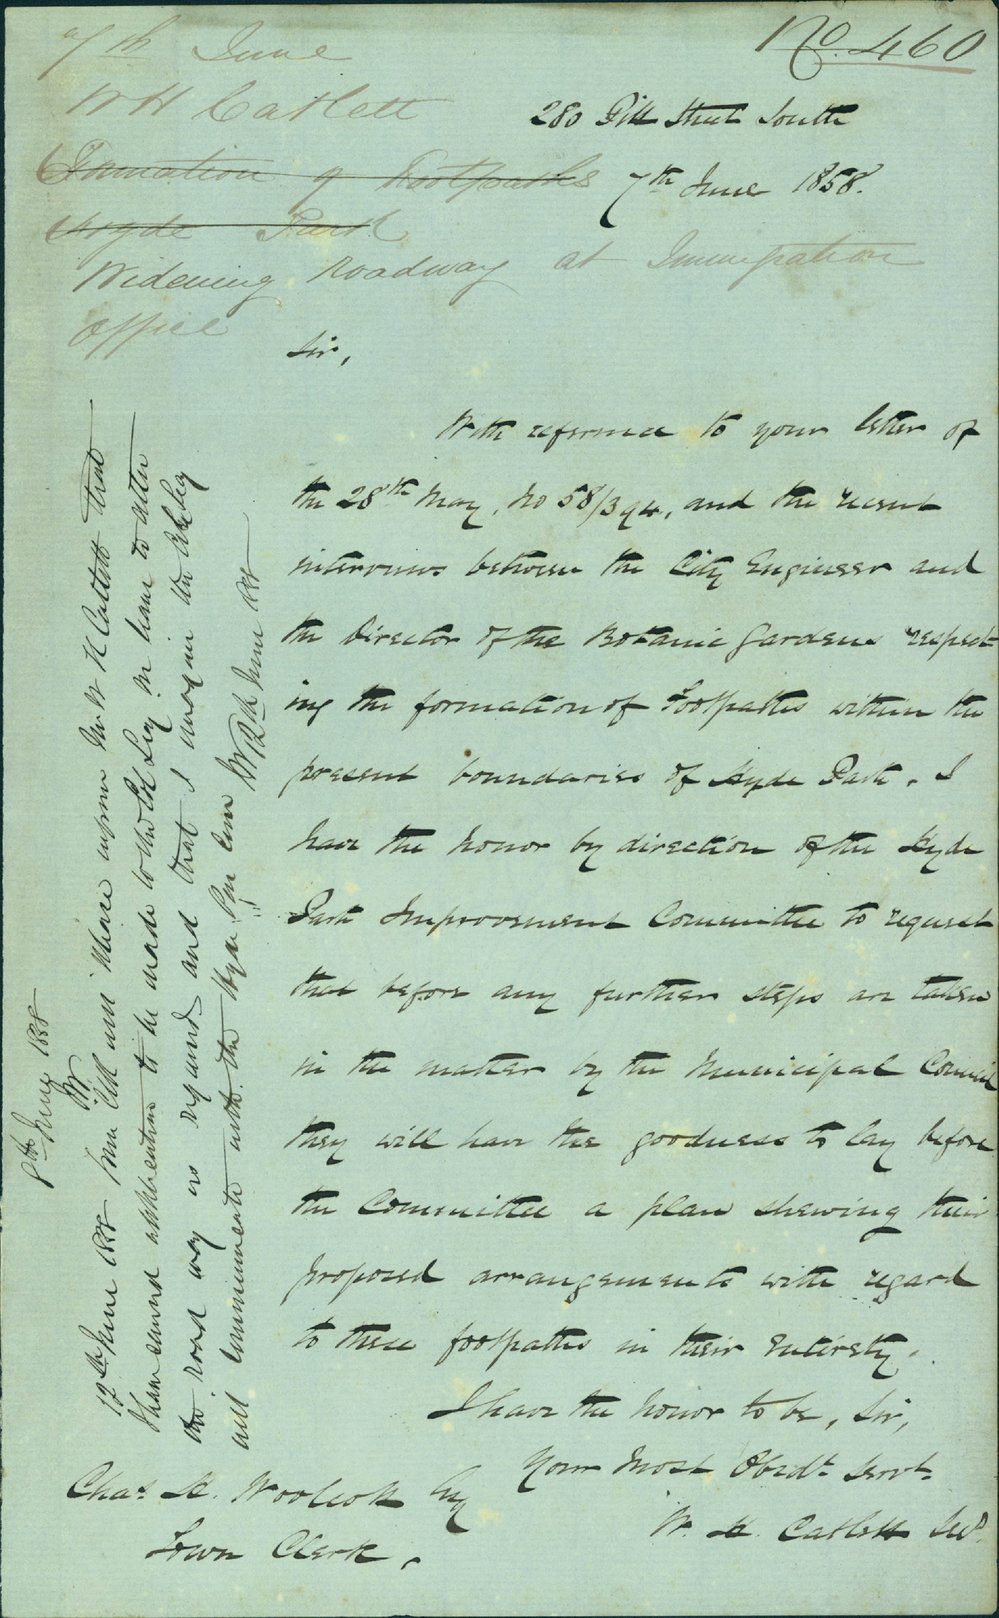 No. 460
7th June
W H Catlett
Formation of Footpaths
Hyde Park
Widening roadway at Immigration
Office
280 Pitt Street South
7th June 1858.
Sir,
With reference to your letter of
the 28th May, No 58/394, and the recent
interviews between the City Engineer and
the Director of the Botanic Gardens respect-
ing the formation of Footpaths within the
present boundaries of Hyde Park, I
have the honor by direction of the Hyde
Park Improvement Committee to request
that before any further steps are taken
in the matter by the Municipal Council
they will have the goodness to lay before
the Committee a plan shewing their
proposed arrangements with regard
to these footpaths in their entirety.
I have the honor to be, Sir,
Your Most Obedt. Servt.
W. H. Catlett Secy.
Chas. H. Woolcott Esq
Town Clerk.
8th June 1858
12th June 1858 inform Mr W H Catlett that
I have caused application to be made to the Col Secy in to alter
the road way as required and that I
will communicate with the Hyde Com
12th June 1858